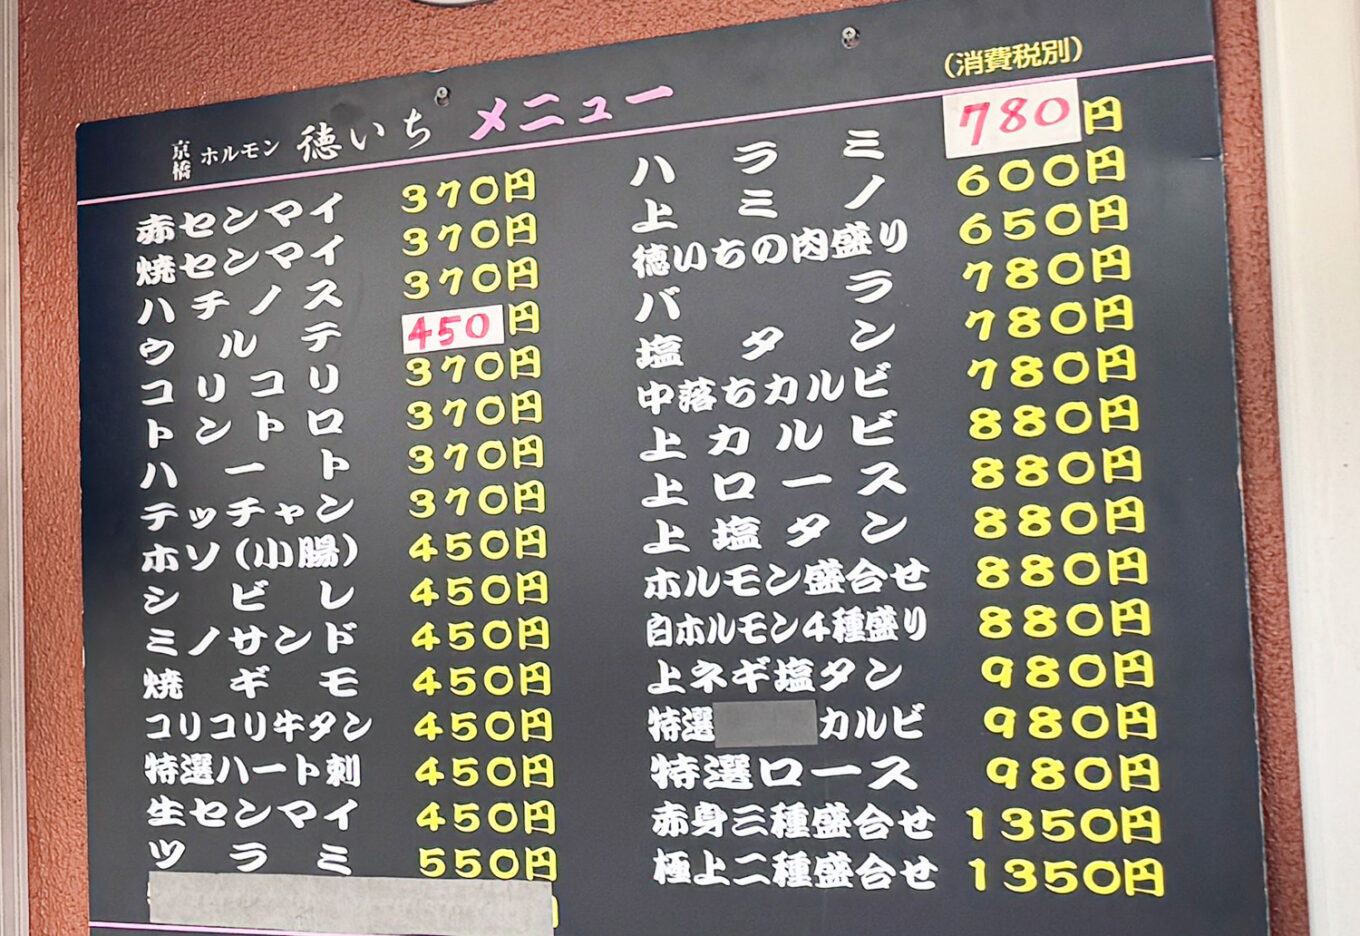 京橋 ホルモン 徳いち メニュー (消費税別)
赤センマイ 370円
焼センマイ 370円
ハチノス 370円
ウルテ 450円
コリコリ 370円
トントロ 370円
ハート 370円
テッチャン 370円
ホソ(小腸) 450円
シビレ 450円
ミノサンド 450円
焼ギモ 450円
コリコリ牛タン 450円
特選ハート刺 450円
生センマイ 450円
ツラミ 550円
ハラミ 780円
上ミノ 600円
徳いちの肉盛り 650円
バラ 780円
塩タン 780円
中落ちカルビ 780円
上カルビ 880円
上ロース 880円
上塩タン 880円
ホルモン盛合せ 880円
白ホルモン4種盛り 880円
上ネギ塩タン 980円
特選 カルビ 980円
特選ロース 980円
赤身三種盛合せ 1350円
極上二種盛合せ 1350円